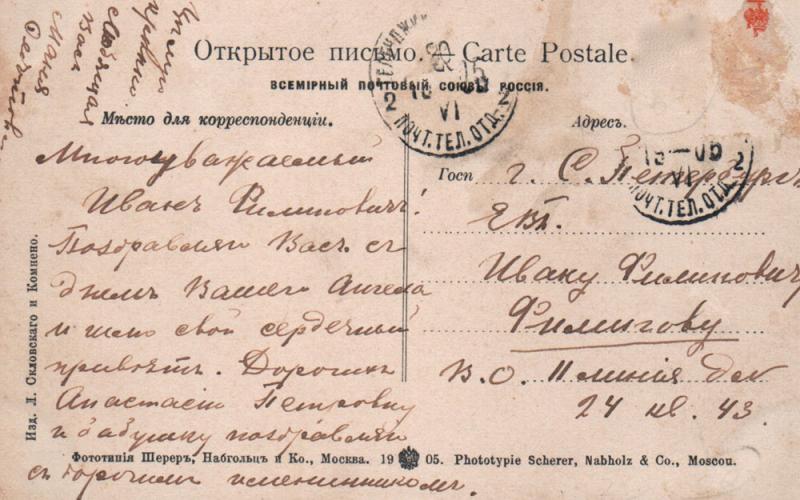 Открытое письмо. — Carte Postale.
ВСЕМІРНЫЙ ПОЧТОВЫЙ СОЮЗЪ РОССІЯ.
Мѣсто для корреспонденціи.
Адресъ.
Многоуважаемый
Иванъ Филиповичъ!
Поздравляю Васъ съ
днемъ Вашего Ангела
и шлю свой сердечный
привѣтъ. Дорогую
Анастасію Петровну
и бабушку поздравляю
съ дорогимъ именинникомъ.
цѣлую
крѣпко
Любящая
Васъ
Маня
Госп г. С. Петербургъ
Ивану Филиповичу
Филипову
В.О. 11 линія
24 кв. 43.
15 — 05
VI
2 ПОЧТ.ТЕЛ.ОТД. 2
VI
ПОЧТ.ТЕЛ.ОТД. 2
Изд. Л. Скловскаго и Комнено.
Фототипія Шереръ, Набгольцъ и Ко., Москва. 19 05. Phototypie Scherer, Nabholz & Co., Moscou.